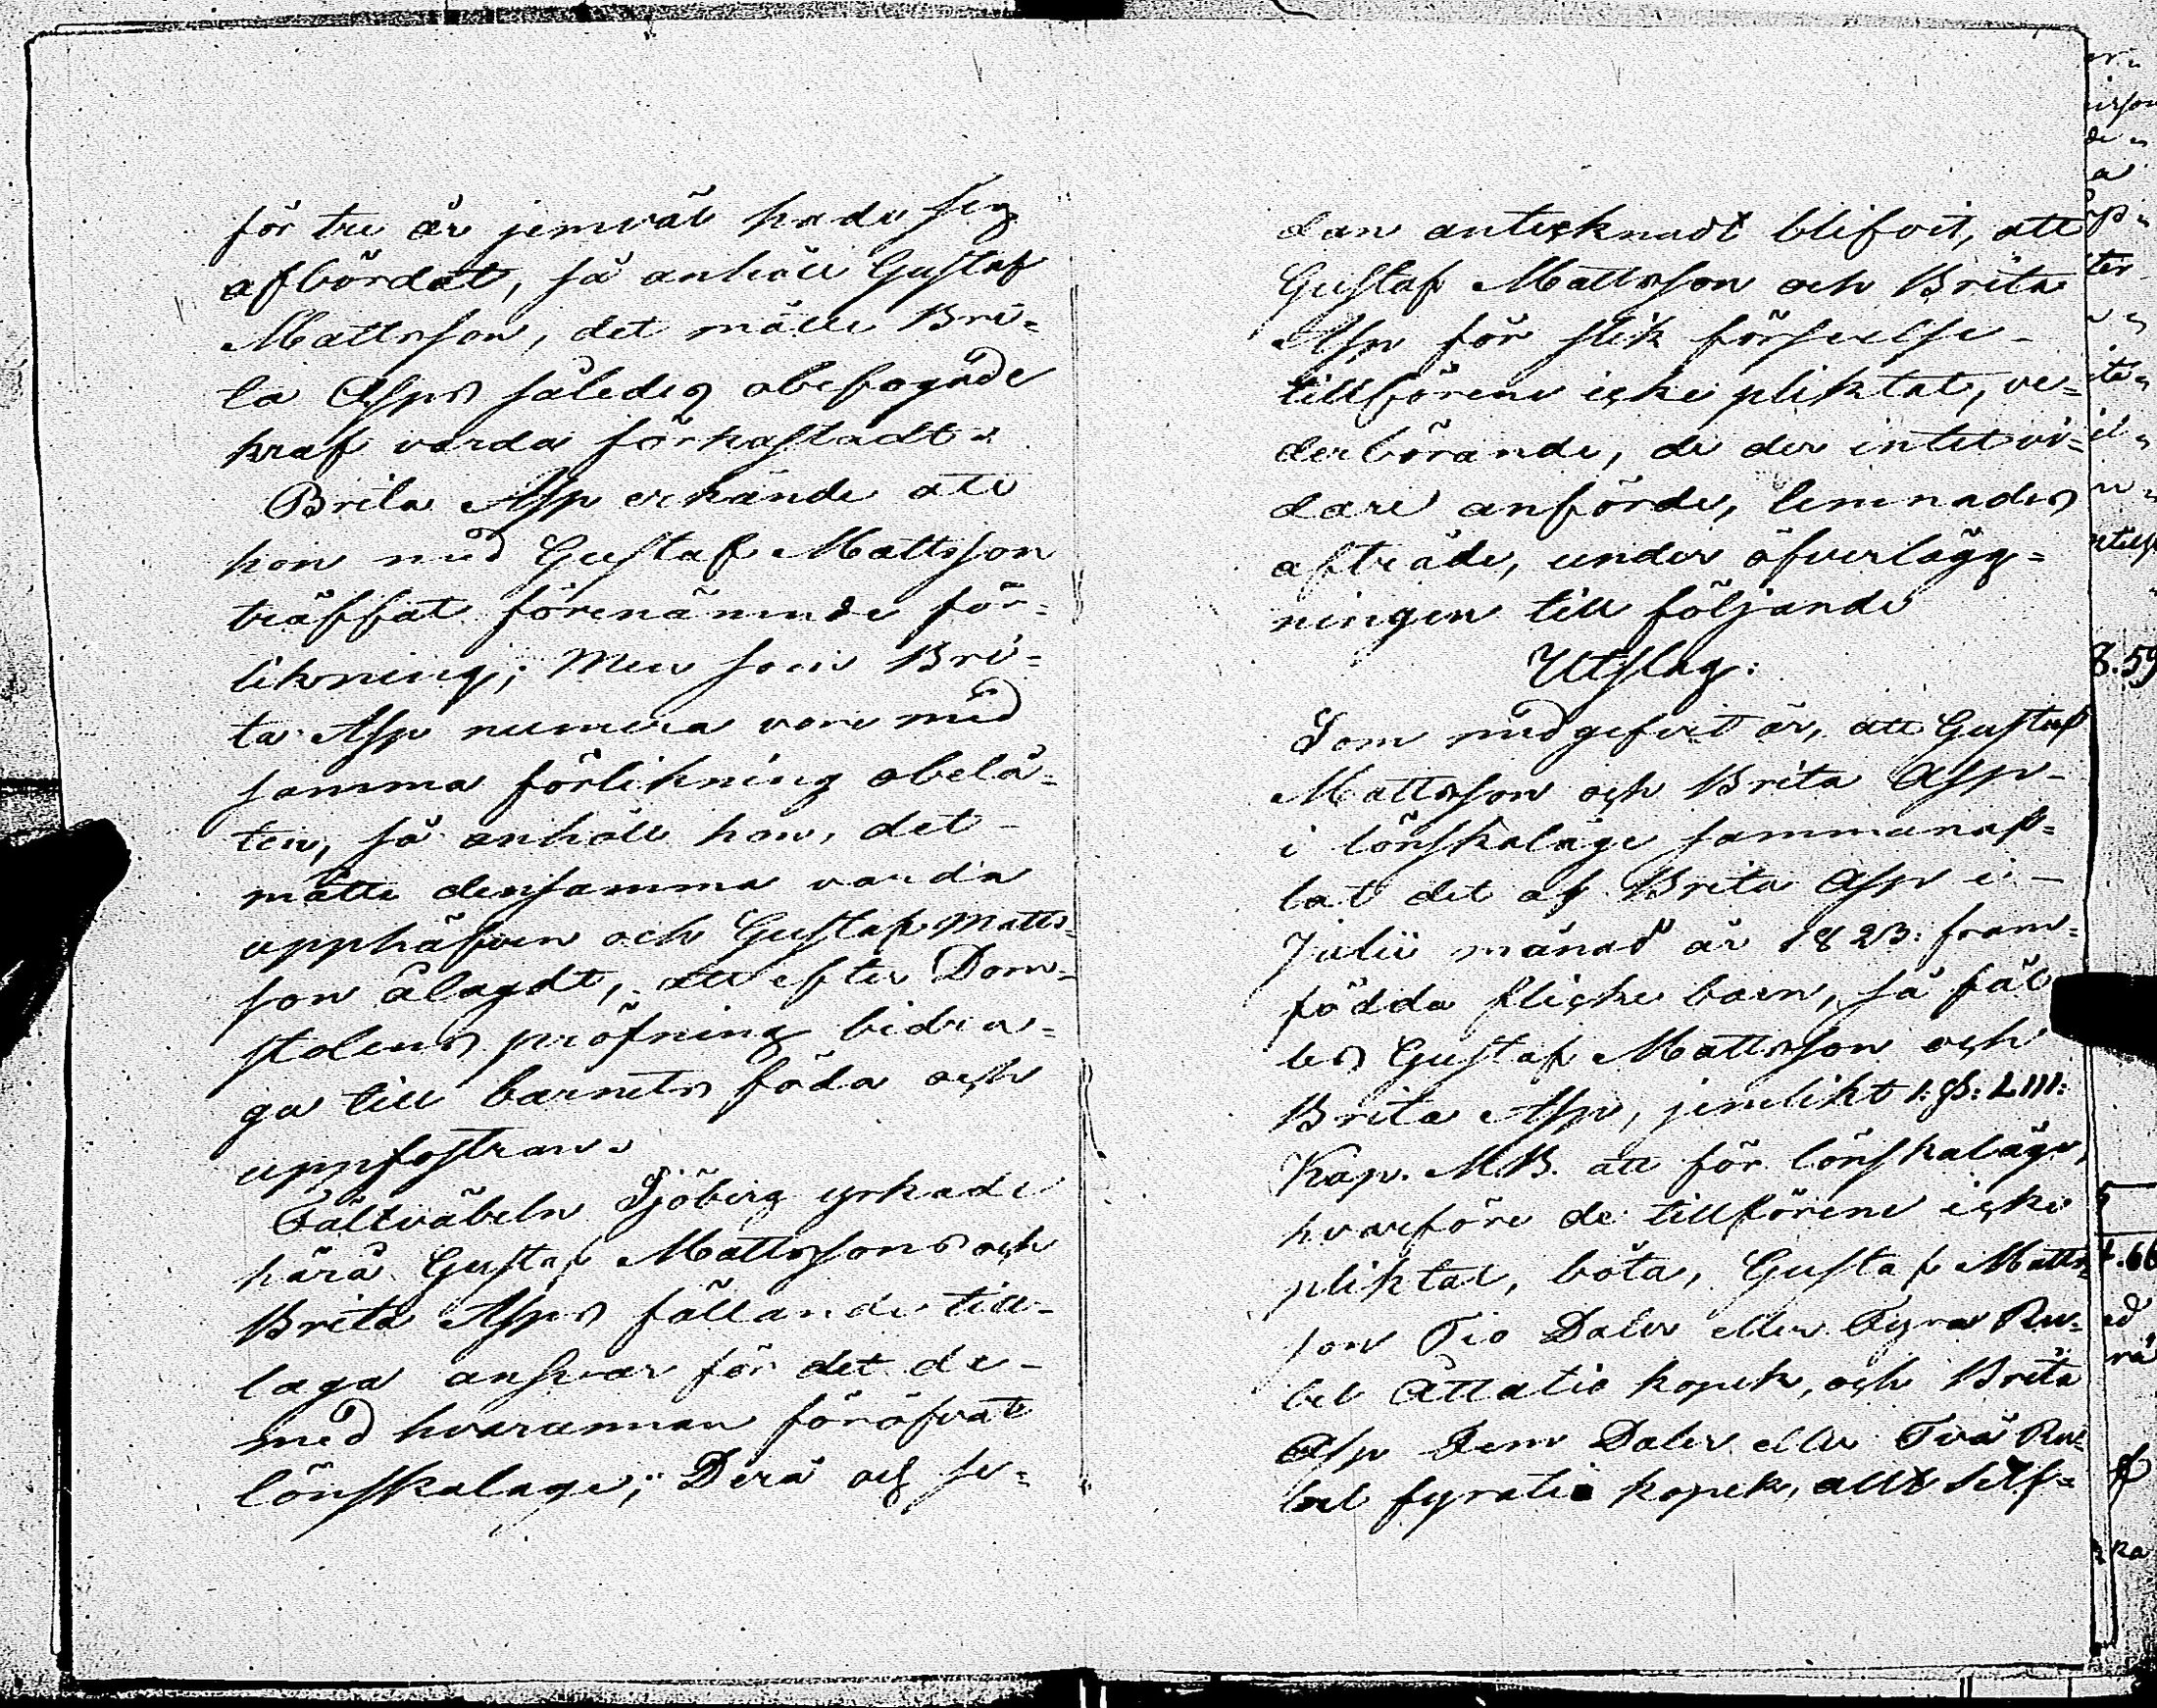 för tre år jemväl hade sig
afbördat, så anhöll Gustaf
Mattsson, det måtte Bri-
ta Asps således obefogade
kraf varda förkastadt.
Brita Asp erkände att
hon med Gustaf Mattsson
träffat förenämnde för-
likning; Men som Bri-
ta Asp numera vore med
samma förlikning obelå-
ten, så anhöll hon, det
måtte densamma varda
upphäfven och Gustaf Matts-
son ålagdt, att efter Dom-
stolens pröfning bidra-
ga till barnets föda och
uppfostran.
Fältväbeln Sjöberg yrkade
härå Gustaf Mattssons och
Brita Asps fällande till
laga ansvar för det de
med hvarannan föröfvat
lönskaläge; Derå och se-
dan antecknadt blifvit, att
Gustaf Mattsson och Brita
Asp för slik förseelse
tillförene icke pliktat, ve-
derbörande, de der intet vi-
dare anförde, lemnades
afträde, under öfverlägg-
ningen till följande
Utslag:
Som medgifvit är, att Gustaf
Mattsson och Brita Asp
i lönskaläge sammanaf-
lat det af Brita Asp i
Julii månad år 1823: fram-
födda flicke barn, så fäl
les Gustaf Mattsson och
Brita Asp, jemlikt 1: §: LIII:
Kap. M.B. att för lönskaläge,
hvarföre de tillförene icke
pliktat, böta, Gustaf Matts-
son Tio Daler eller Fyra Ru-
bel Åttatio kopek, och Brita
Asp Fem Daler eller Två Ru-
bel fyratio kopek, allt Silf-
8.59
4.66